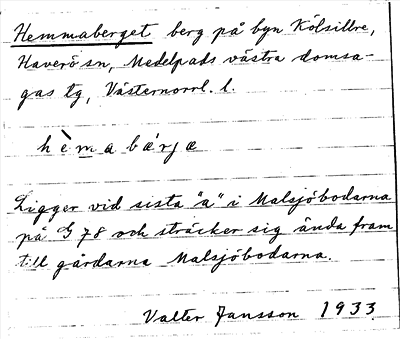 Hemmaberget berg på byn Kölsillre,
Haverö sn, Medelpads västra domsa-
gas tg, Västernorrl. l.
hèm a bærjæ
Ligger vid sista "a" i Malsjöbodarna
på G 78 och sträcker sig ända fram
till gårdarna Malsjöbodarna.
Valter Jansson 1933